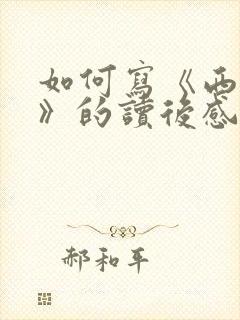 如何寫《西
》的讀後感
郝和平